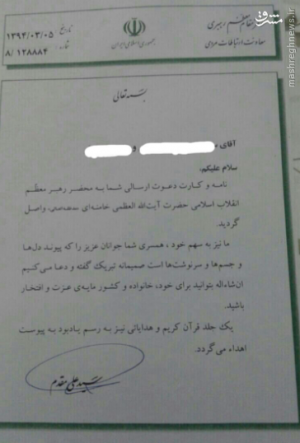 مشرق
mashreghnews.ir
دفتر مقام معظم رهبری
معاونت ارتباطات مردمی
جمهوری اسلامی ایران
تاریخ: ۱۳۹۴/۰۳/۰۵
شماره: ۸/۱۲۸۸۸۴
بسمه تعالی
آقای و
سلام علیکم؛
نامه و کارت دعوت ارسالی شما به محضر رهبر معظم
انقلاب اسلامی حضرت آیت‌الله العظمی خامنه‌ای واصل
گردید.
ما نیز به سهم خود، همسری شما جوانان عزیز را که پیوند دل‌ها
و جسم‌ها و سرنوشت‌ها است صمیمانه تبریک گفته و دعا می‌کنیم
ان‌شاءالله بتوانید برای خود، خانواده و کشور مایه‌ی عزت و افتخار
باشید.
یک جلد قرآن کریم و هدایائی نیز به رسم یادبود به پیوست
اهداء می‌گردد.
سید علی مقدم